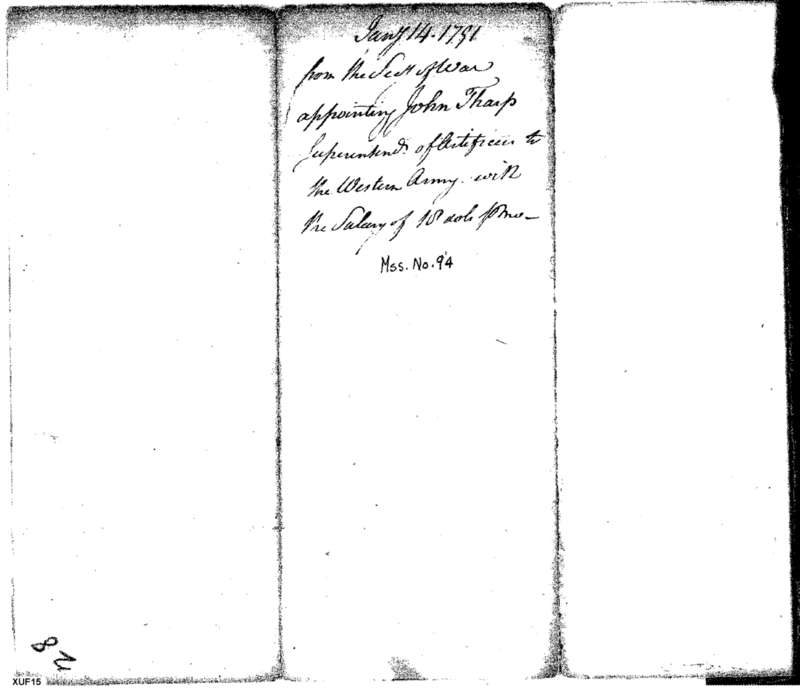 Jany 14. 1791
from the Secy of War
appointing John Tharp
Superintendt of Artificers to
the Western Army with
the Salary of 18 dols p mo—
Mss. No. 94
28
XUF15